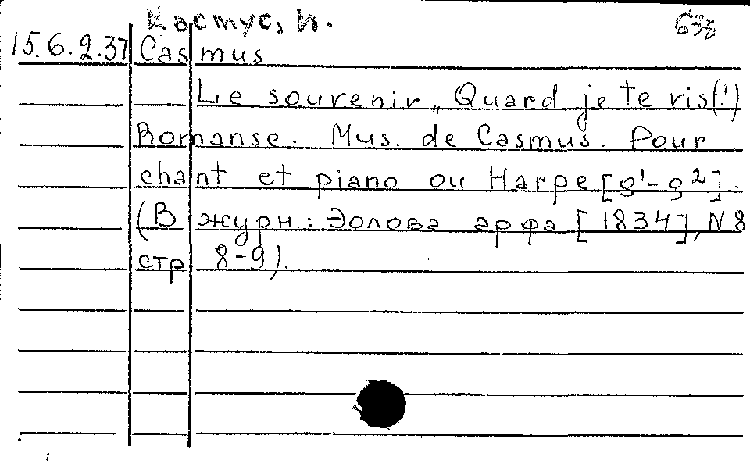 Кастус, И.
15.6.2.37 Casmus
Le souvenir „Quard je te vis(!)
Romanse. Mus. de Casmus. Pour
chant et piano ou Harpe [g¹-g²].
(В журн: Эолова арфа [1834], N 8
стр 8-9).